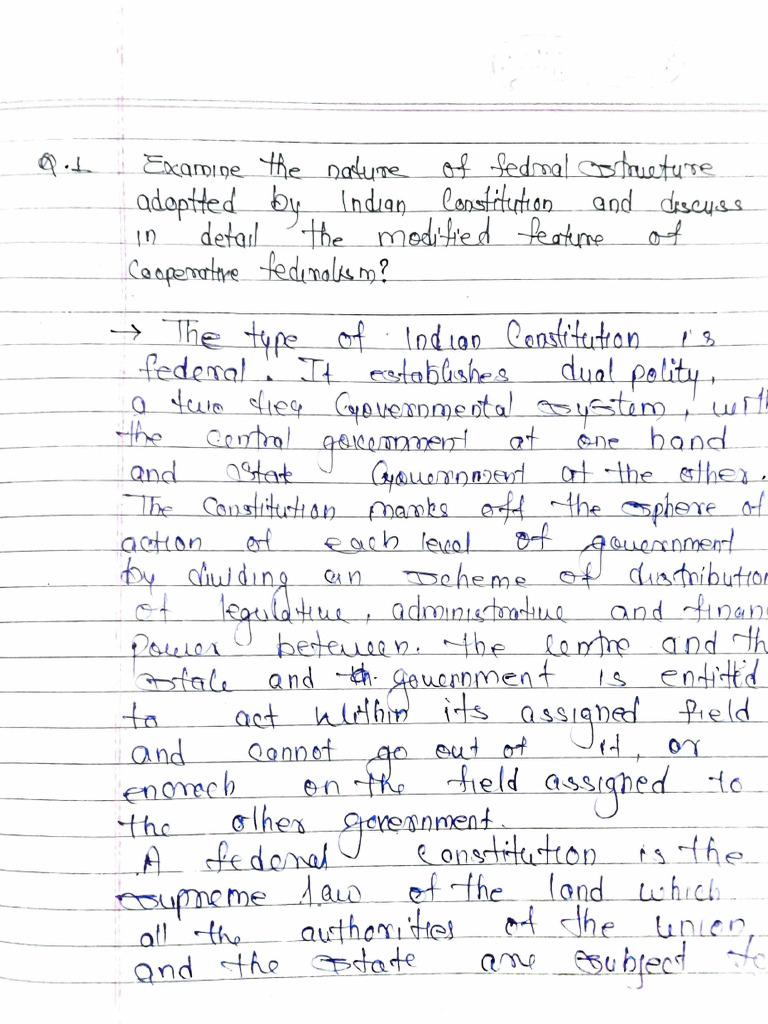 Q.1 Examine the nature of fedral structure
adoptted by Indian Constitution and discuss
in detail the modified feature of
Cooperative fediralism?
→ The type of Indian Constitution is
federal. It establishes dual polity,
a two tieq Governmental system, with
the central government at one hand
and state Government at the other.
The Constitution marks off the sphere of
action of each level of government
by dividing an scheme of distribution
of legulative, administrative and finan
power between. the centre and th
state and th. government is entittd
to act within its assigned field
and cannot go out of it, or
enorach on the field assigned to
the other government.
A federal Constitution is the
supreme law of the land which
all the authorities of the union,
and the state are subject to